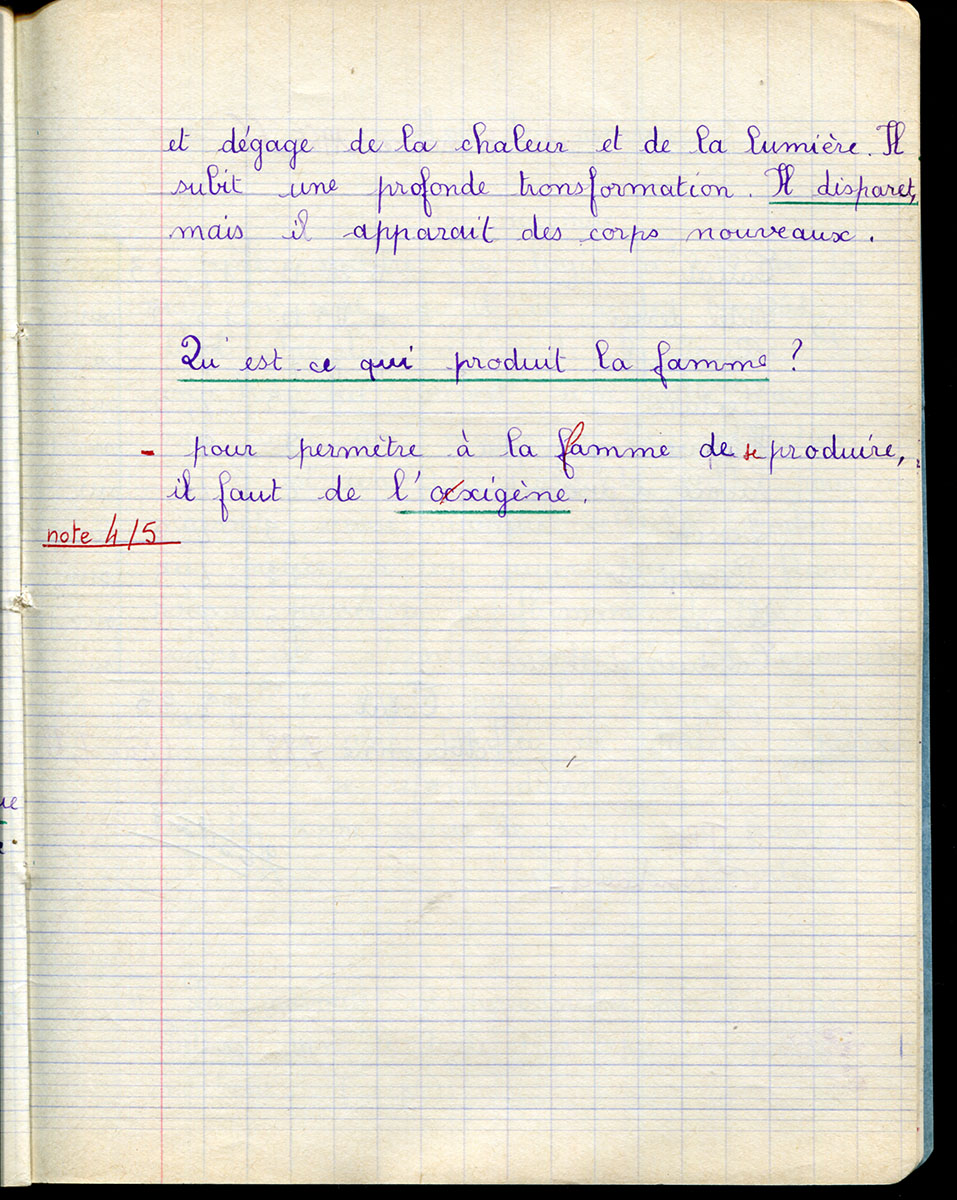 et dégage de la chaleur et de la lumière. Il
subit une profonde transformation. Il disparet,
mais il apparait des corps nouveaux.
Qu'est ce qui produit la famme ?
- pour permètre à la flamme de se produire,
il faut de l'oxigène.
note 4/5